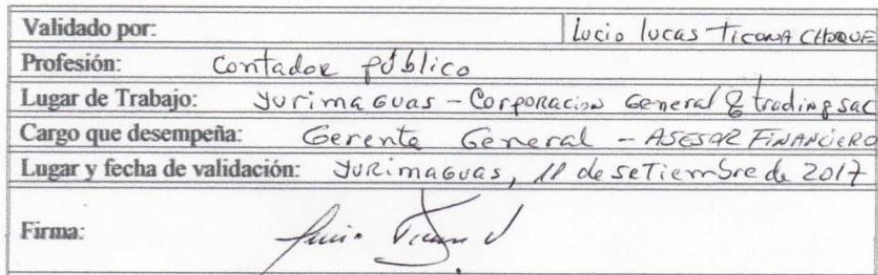 Validado por: Lucio lucas Ticona CHOQUE
Profesión: Contador público
Lugar de Trabajo: Yurimaguas - Corporacion General & trading sac
Cargo que desempeña: Gerente General - ASESOR FINANCIERO
Lugar y fecha de validación: Yurimaguas, 11 de seTiembre de 2017
Firma: